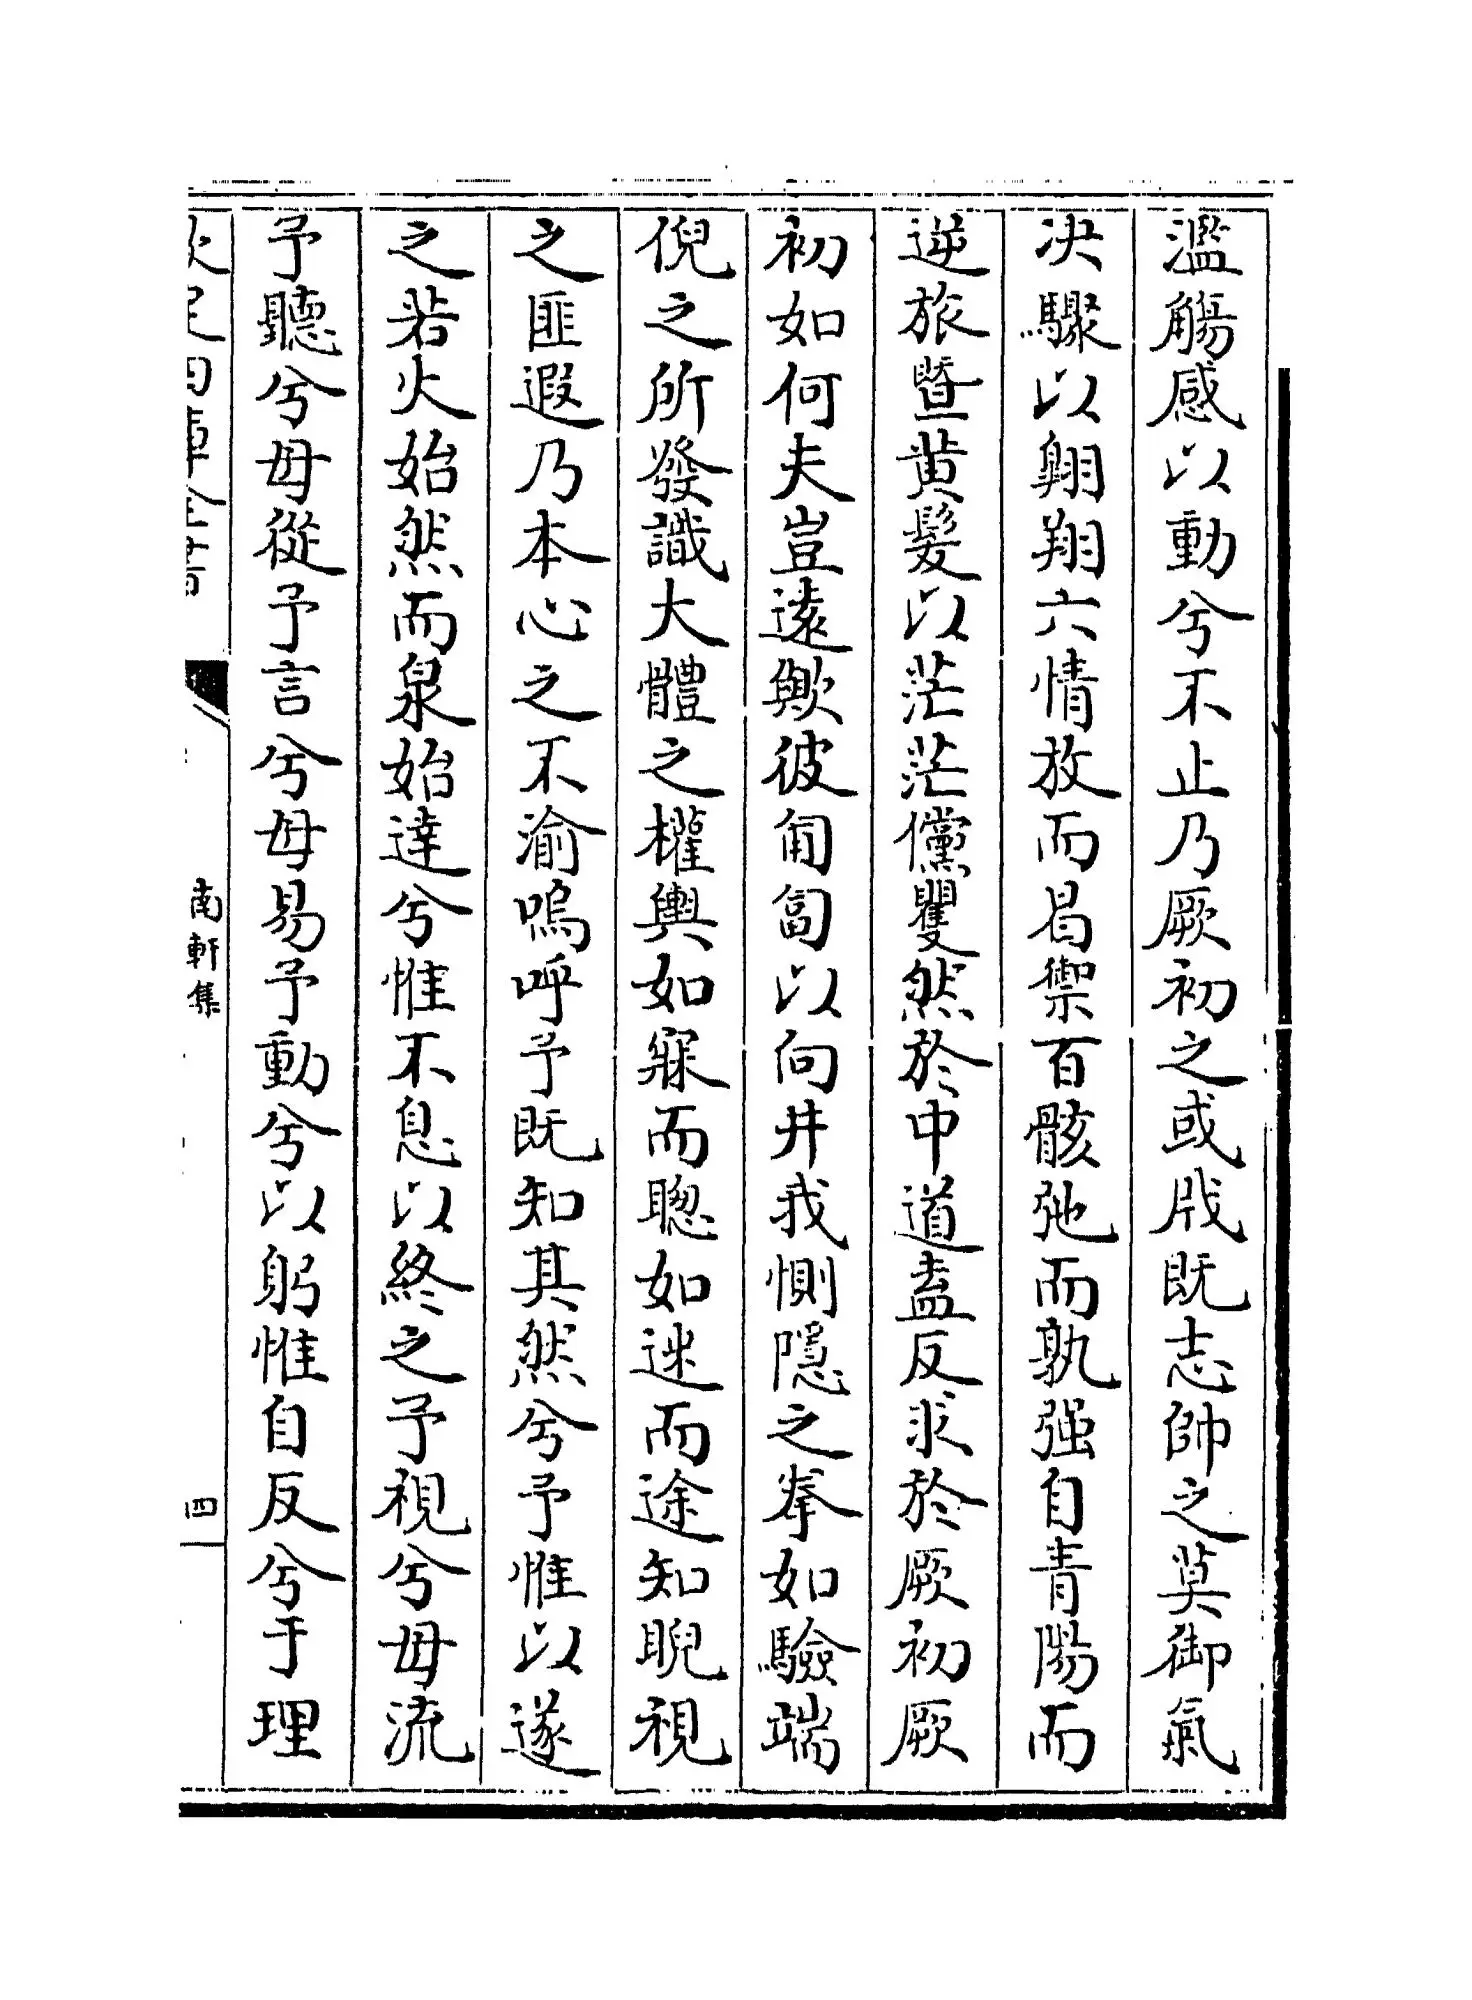 濫觴感以動兮不止乃厥初之或戕既志帥之莫御氣
决驟以翺翔六情放而曷禦百骸弛而孰强自青陽而
逆旅暨黄髮以茫茫儻矍然於中道盍反求於厥初厥
初如何夫豈遠歟彼匍匐以向井我惻隱之拳如驗端
倪之所發識大體之權輿如寐而聰如迷而途知睨視
之匪遐乃本心之不渝嗚呼予既知其然兮予惟以遂
之若火始然而泉始達兮惟不息以終之予視兮毋流
予聽兮毋從予言兮毋易予動兮以躬惟自反兮于理
欽定四庫全書
南軒集
四